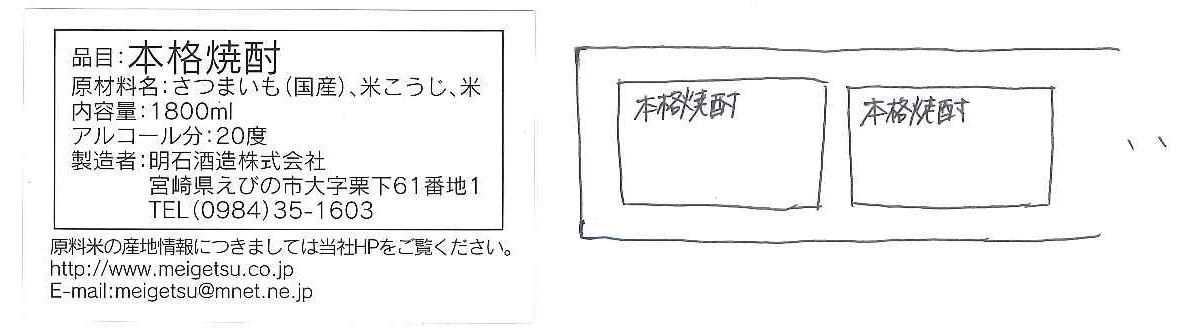 品目:本格焼酎
原材料名:さつまいも(国産)、米こうじ、米
内容量:1800ml
アルコール分:20度
製造者:明石酒造株式会社
宮崎県えびの市大字栗下61番地1
TEL(0984)35-1603
原料米の産地情報につきましては当社HPをご覧ください。
http://www.meigetsu.co.jp
E-mail:meigetsu@mnet.ne.jp
本格焼酎
本格焼酎